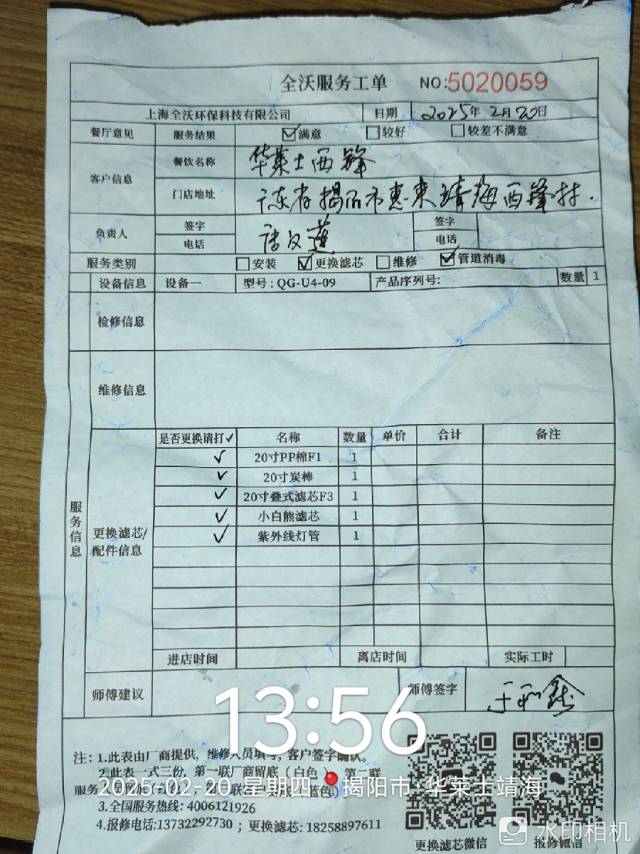 全沃服务工单 NO:5020059
上海全沃环保科技有限公司 日期 2025年2月20日
餐厅意见 服务结果 ☑满意 □较好 □较差不满意
客户信息 餐饮名称 华莱士西锋
门店地址 广东省揭阳市惠来靖海西锋村.
负责人 签字 签字
电话 电话
服务类别 □安装 ☑更换滤芯 □维修 ☑管道消毒
设备信息 设备一 型号:QG-U4-09 产品序列号: 数量 1
检修信息
维修信息
服务信息
更换滤芯/配件信息
是否更换请打✓ 名称 数量 单价 合计 备注
✓ 20寸PP棉F1 1
✓ 20寸炭棒 1
✓ 20寸叠式滤芯F3 1
✓ 小白熊滤芯 1
✓ 紫外线灯管 1
进店时间 离店时间 实际工时
师傅建议 师傅签字
13:56
注:1.此表由厂商提供,维修人员填写,客户签字确认。
2.此表一式三份,第一联厂商留底(白色) 第二联
服务 蓝色)
2025-02-20 星期四 揭阳市·华莱士靖海
3.全国服务热线:4006121926
4.报修电话:13732292730;更换滤芯:18258897611
更换滤芯微信 报修微信
水印相机